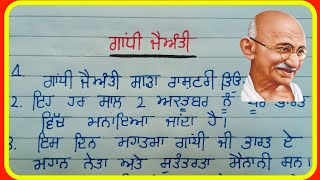 ਗਾਂਧੀ ਜੈਅੰਤੀ
1. ਗਾਂਧੀ ਜੈਅੰਤੀ ਸਾਡਾ ਰਾਸ਼ਟਰੀ
2. ਇਹ ਹਰ ਸਾਲ 2 ਅਕਤੂਬਰ ਨੂੰ ਪੂਰੇ ਭਾਰਤ
ਵਿੱਚ ਮਨਾਇਆ ਜਾਂਦਾ ਹੈ।
3. ਇਸ ਦਿਨ ਮਹਾਤਮਾ ਗਾਂਧੀ ਜੀ ਭਾਰਤ ਦੇ
ਮਹਾਨ ਨੇਤਾ ਅਤੇ ਸੁਤੰਤਰਤਾ ਸੈਨਾਨੀ ਸਨ।